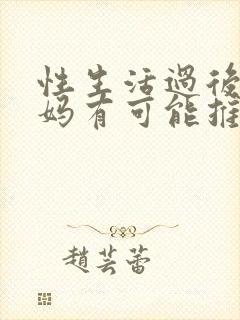 性生活過後
妈有可能推
趙芸蕾